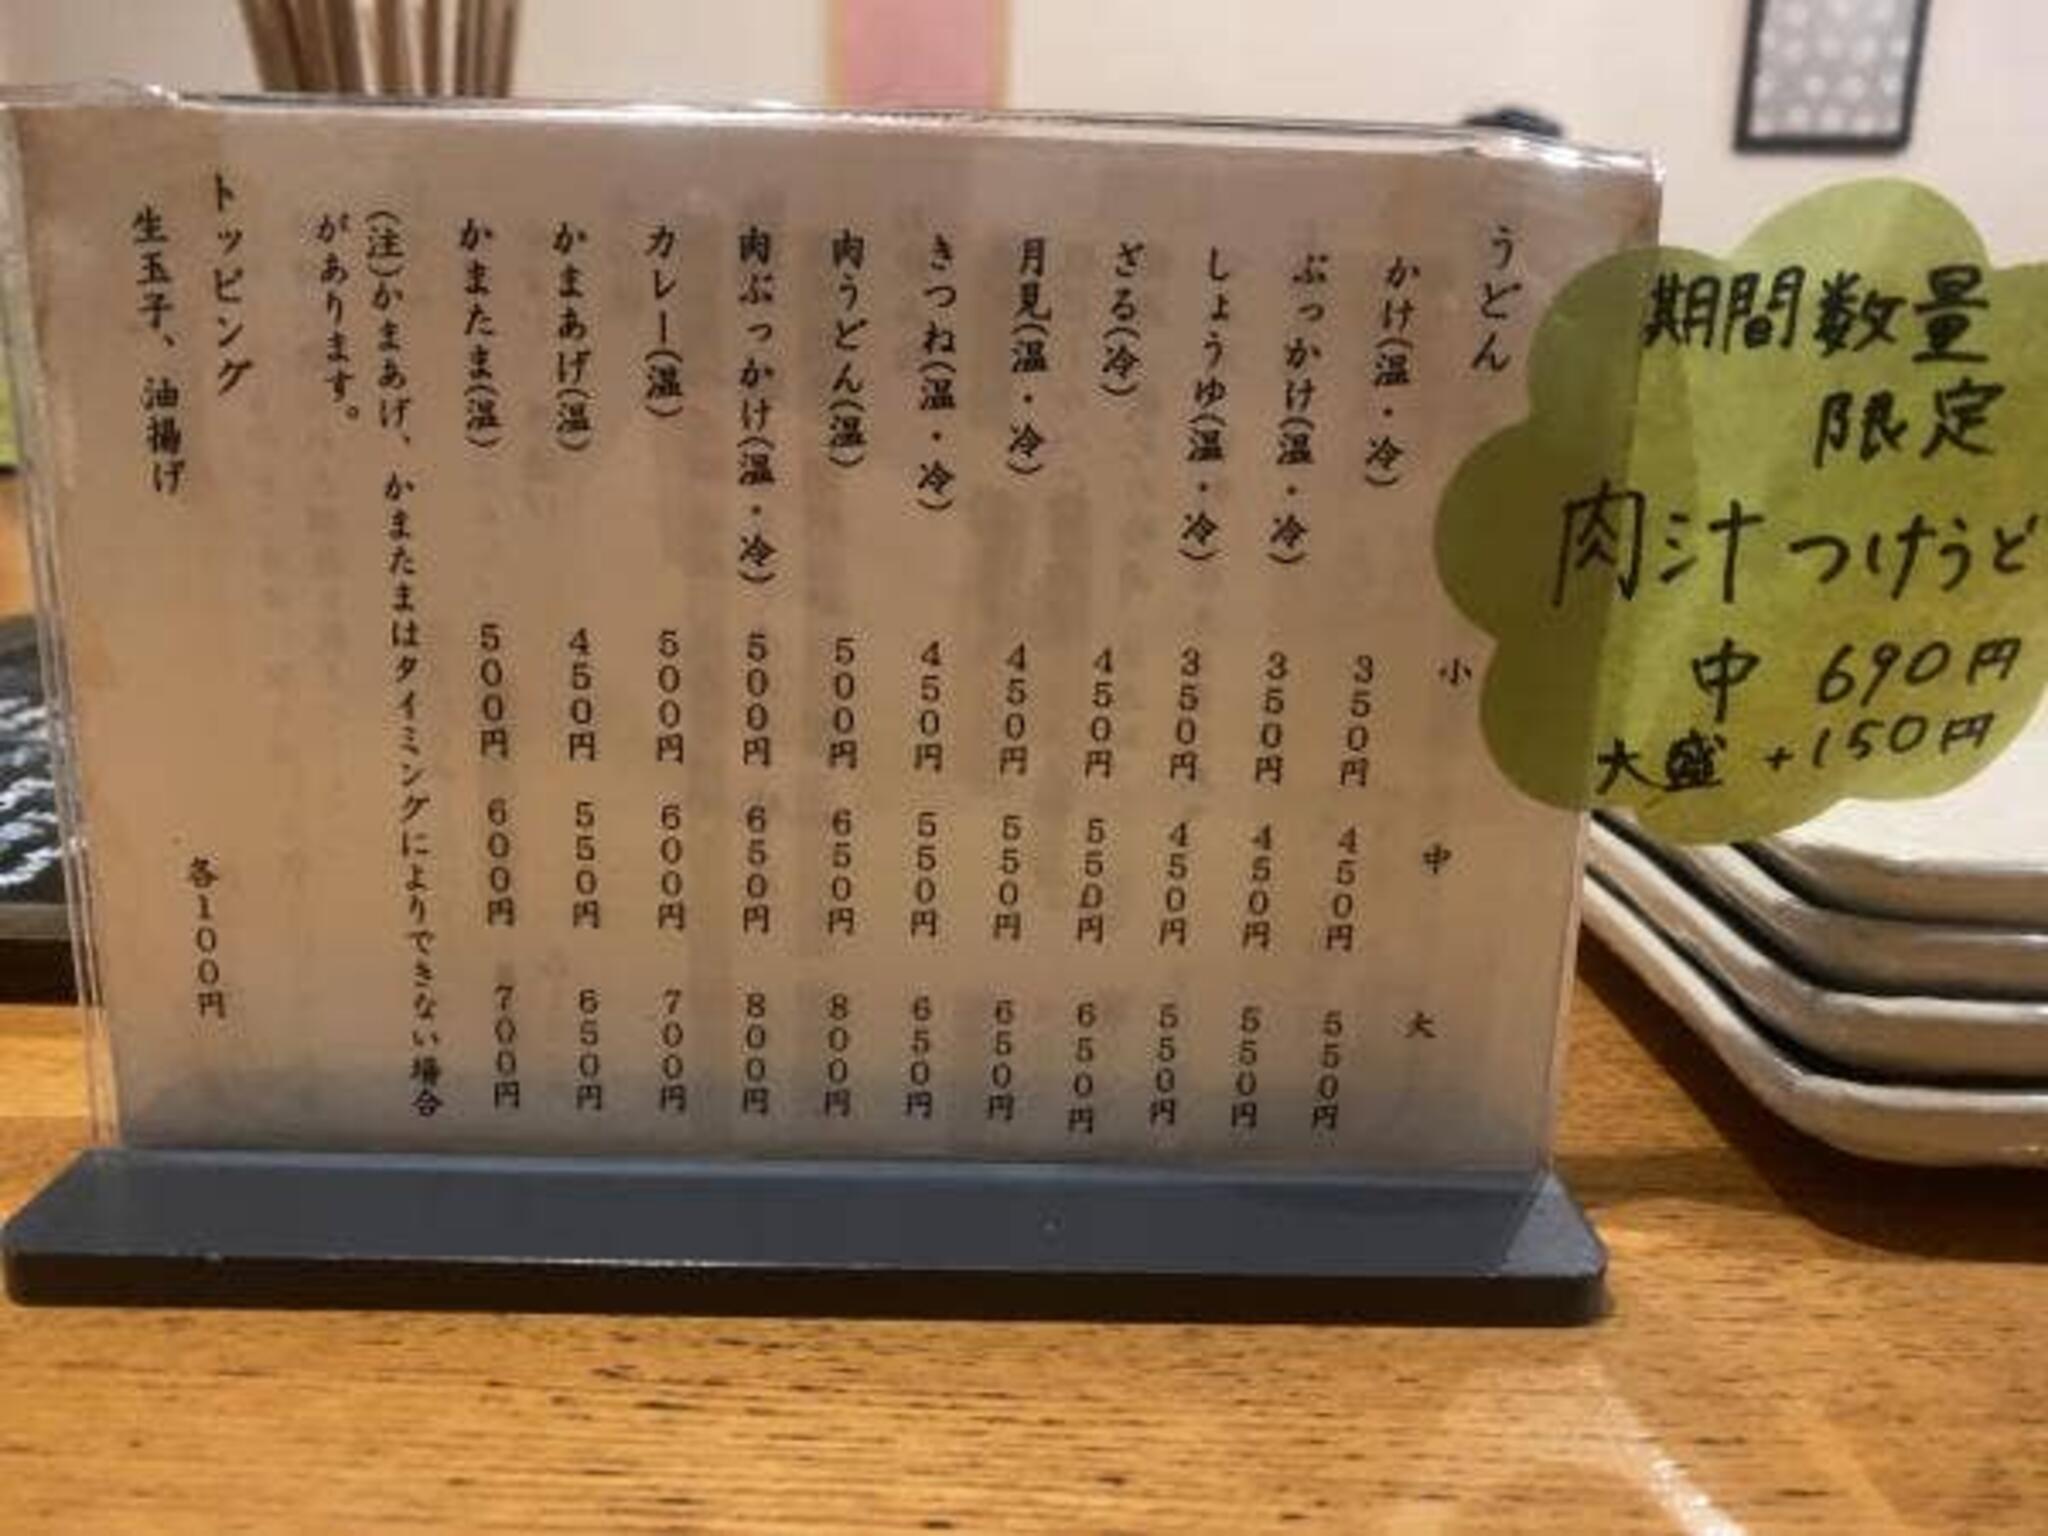 うどん
小 中 大
かけ(温・冷) 350円 450円 550円
ぶっかけ(温・冷) 350円 450円 550円
しょうゆ(温・冷) 350円 450円 550円
ざる(冷) 450円 550円 650円
月見(温・冷) 450円 550円 650円
きつね(温・冷) 450円 550円 650円
肉うどん(温) 500円 650円 800円
肉ぶっかけ(温・冷) 500円 650円 800円
カレー(温) 500円 600円 700円
かまあげ(温) 450円 550円 650円
かまたま(温) 500円 600円 700円
(注)かまあげ、かまたまはタイミングによりできない場合
があります。
トッピング
生玉子、油揚げ 各100円
期間数量
限定
肉汁つけうど
中 690円
大盛 +150円